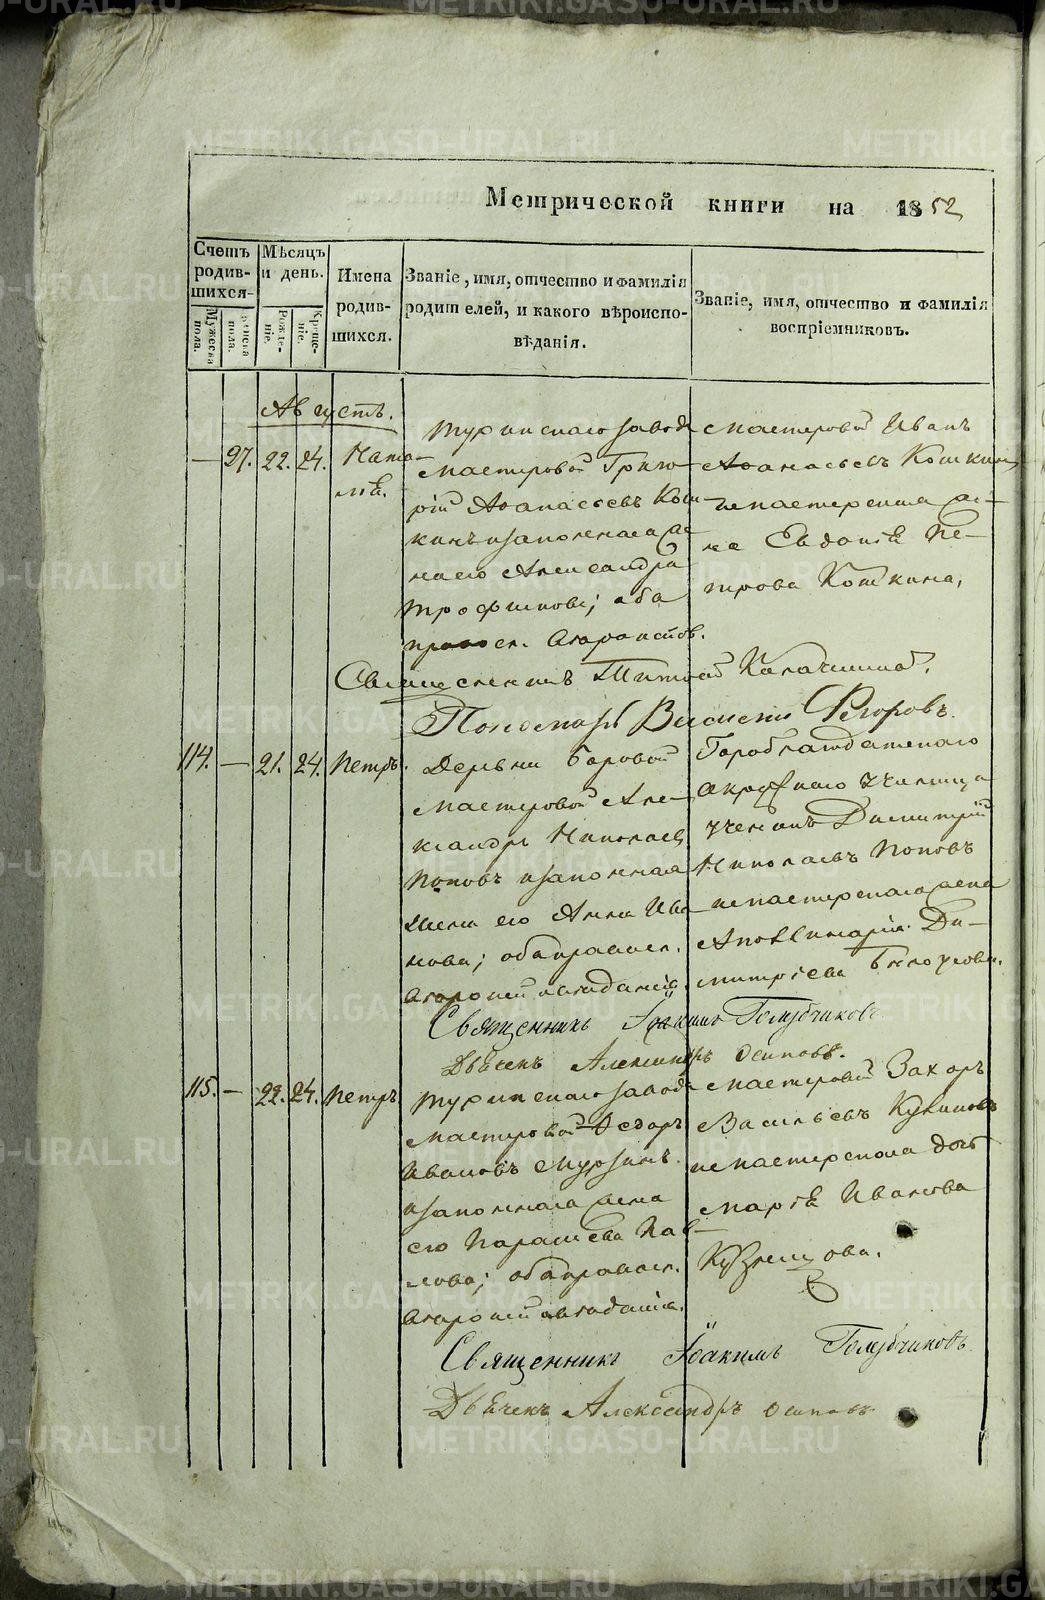 Метрической книги на 1852
Счетъ родив-шихся.
Мужеска пола.
Женска пола.
Мѣсяцъ и день.
Рожде-ніе.
Креще-ніе.
Имена родив-шихся.
Званіе, имя, отчество и фамилія родителей, и какого вѣроиспо-вѣданія.
Званіе, имя, отчество и фамилія воспріемниковъ.
Августъ.
— 97. 22. 24. Ната-
лія.
Туринскаго завода
мастеровой Григо-
рій Аѳанасьевъ Кош-
кинъ и законная же-
на его Александра
Трофимова; оба
правосл.
мастеровой Иванъ
Аѳанасьевъ Кошкинъ
и мастерская же-
на Евдокія Пе-
трова Кошкина.
Священникъ Калачниковъ.
Пономарь Егоровъ.
114. — 21. 24. Петръ.
Деревни Боровой
мастеровой Але-
ксандръ Николаевъ
Поповъ и законная
жена его Анна Ива-
нова; оба правосл.
Гороблагодатскаго
окружнаго училища
ученикъ Димитрій
Николаевъ Поповъ
и мастерскаго жена
Аполлинарія Ди-
митріева Бѣлоусова.
Священникъ Іоакимъ Голубчиковъ.
Дьячекъ Александръ Осиповъ.
115. — 22. 24. Петръ
Туринскаго завода
мастеровой Ѳедоръ
Ивановъ Мурзинъ
и законная жена
его Парасковья Пав-
лова; оба правосл.
мастеровой Захаръ
Васильевъ Куликовъ
и мастерская дочь
Марія Иванова
Кузнецова.
Священникъ Іоакимъ Голубчиковъ
Дьячекъ Александръ Осиповъ
METRIKI.GASO-URAL.RU